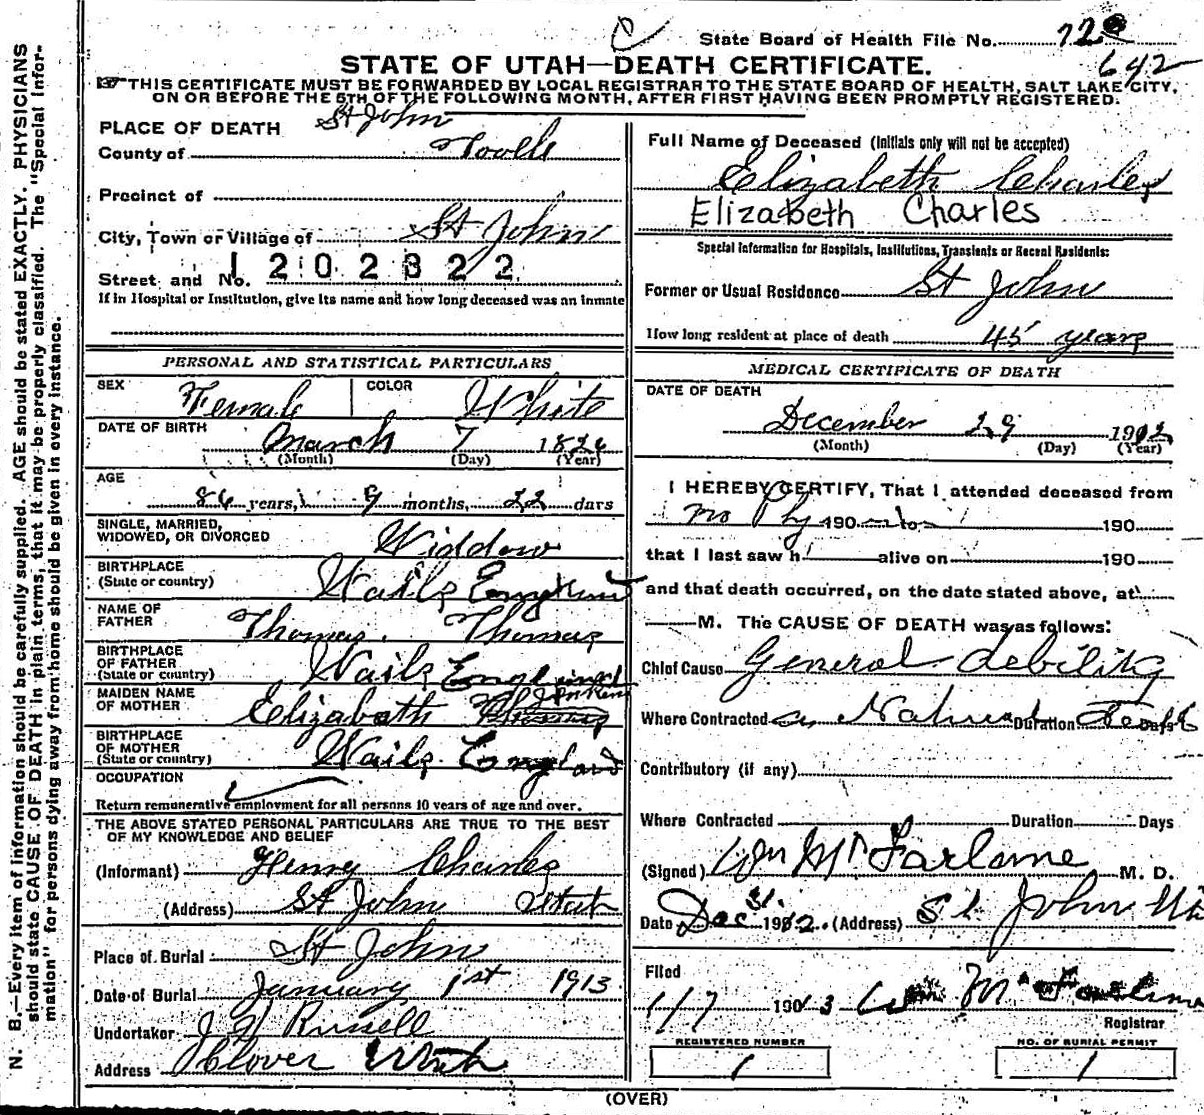 State Board of Health File No. 72
642
STATE OF UTAH—DEATH CERTIFICATE.
THIS CERTIFICATE MUST BE FORWARDED BY LOCAL REGISTRAR TO THE STATE BOARD OF HEALTH, SALT LAKE CITY,
ON OR BEFORE THE 5TH OF THE FOLLOWING MONTH, AFTER FIRST HAVING BEEN PROMPTLY REGISTERED.
N. B.—Every item of information should be carefully supplied. AGE should be stated EXACTLY. PHYSICIANS
should state CAUSE OF DEATH in plain terms, that it may be properly classified. The "Special Infor-
mation" for persons dying away from home should be given in every instance.
PLACE OF DEATH St John
County of Tooele
Precinct of
City, Town or Village of St John
Street and No. 1202322
If in Hospital or Institution, give its name and how long deceased was an inmate
PERSONAL AND STATISTICAL PARTICULARS
SEX Female COLOR White
DATE OF BIRTH March 7 1826
(Month) (Day) (Year)
AGE
86 years, 9 months, 22 days
SINGLE, MARRIED,
WIDOWED, OR DIVORCED Widdow
BIRTHPLACE
(State or country) Wails England
NAME OF
FATHER Thomas Thomas
BIRTHPLACE
OF FATHER
(State or country) Wails England
MAIDEN NAME
OF MOTHER Elizabeth Jenkens
BIRTHPLACE
OF MOTHER
(State or country) Wails England
OCCUPATION
Return remunerative employment for all persons 10 years of age and over.
THE ABOVE STATED PERSONAL PARTICULARS ARE TRUE TO THE BEST
OF MY KNOWLEDGE AND BELIEF
(Informant) Henry Charles
(Address) St John Utah
Place of Burial St John
Date of Burial January 1st 1913
Undertaker J H Russell
Address Clover Utah
Full Name of Deceased (Initials only will not be accepted)
Elizabeth Charles
Elizabeth Charles
Special Information for Hospitals, Institutions, Transients or Recent Residents:
Former or Usual Residence St John
How long resident at place of death 45 years
MEDICAL CERTIFICATE OF DEATH
DATE OF DEATH
December 29 1912
(Month) (Day) (Year)
I HEREBY CERTIFY, That I attended deceased from
no Phy 190 to 190
that I last saw h alive on 190
and that death occurred, on the date stated above, at
M. The CAUSE OF DEATH was as follows:
Chief Cause General debility
Where Contracted a Natural Duration Death Days
Contributory (if any)
Where Contracted Duration Days
(Signed) Wm McFarlane M. D.
Date Dec 31 1912. (Address) St John Ut
Filed
1/7 1913 Wm McFarlane
Registrar
REGISTERED NUMBER
1
NO. OF BURIAL PERMIT
1
(OVER)